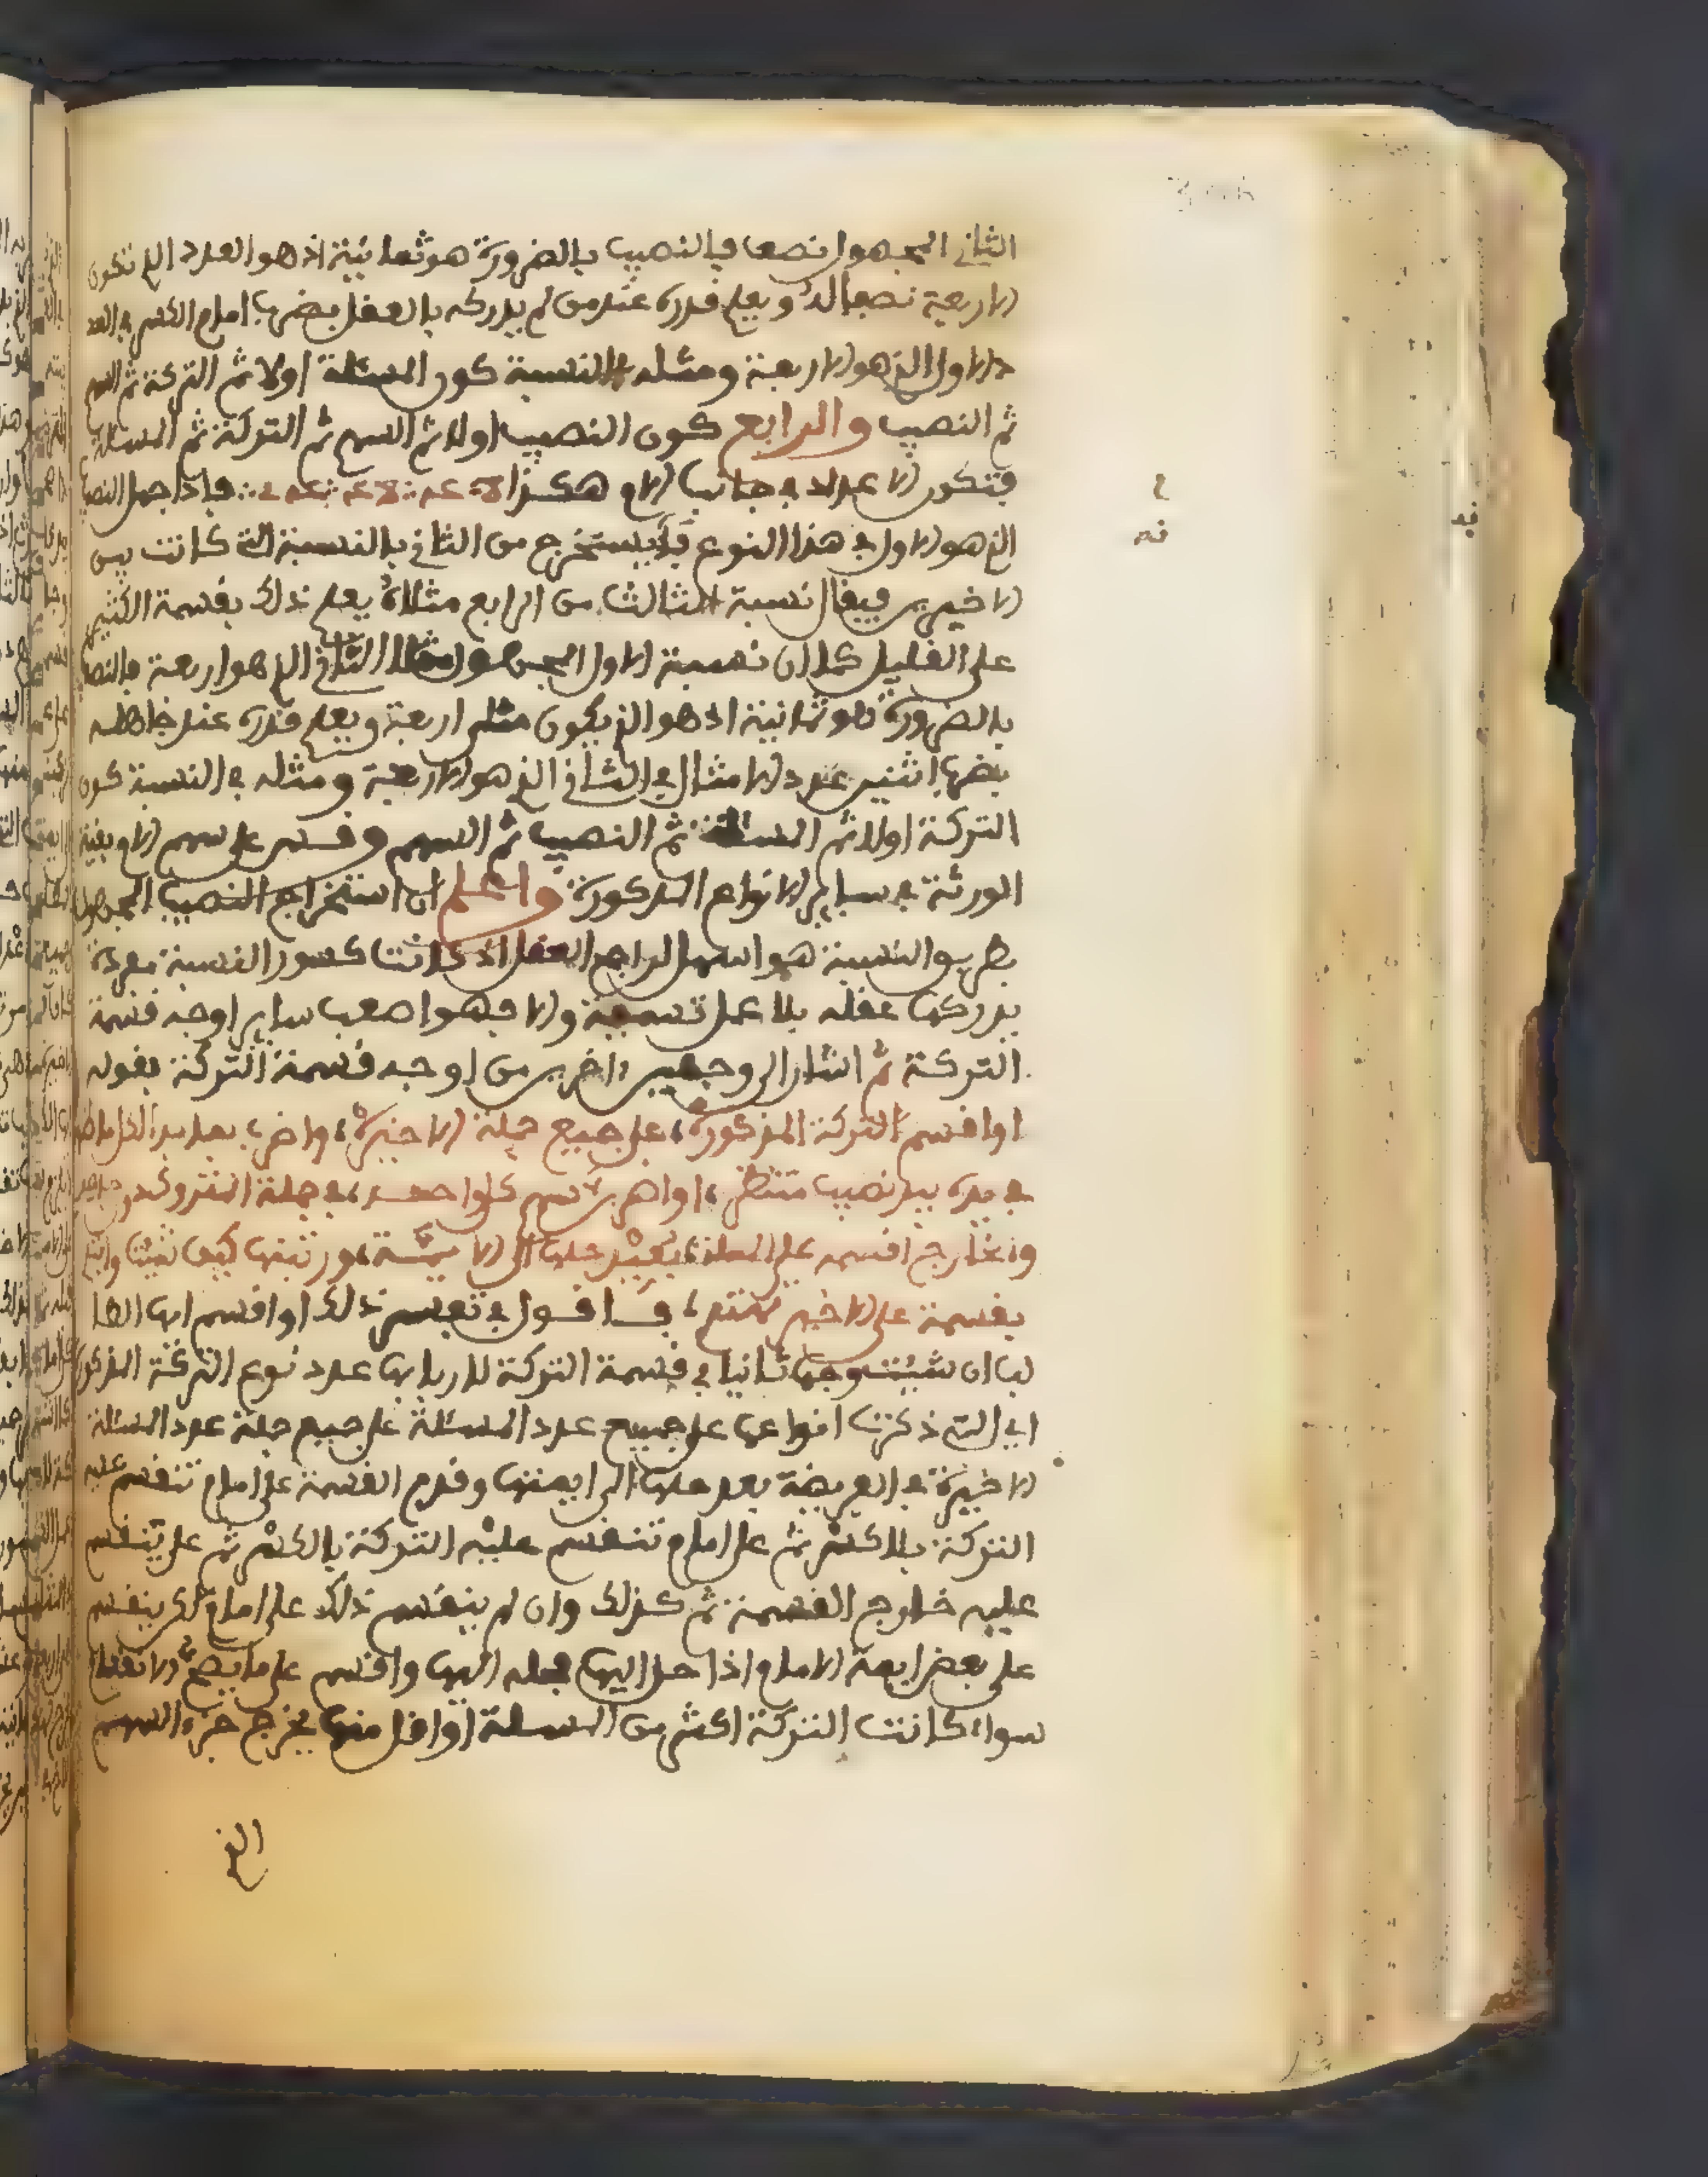 الثاني المجهول نصفا فالنصيب بالضرورة هو ثمانية اذ هو العدد الذي تكون
الاربعة نصفا له ويعلم قدره عند من لم يدركه بالعقل بضرب امام الكسر في العد
د الاول الذي هو الاربعة ومثله في النسبة كون المسئلة اولا ثم التركة ثم السهم
ثم النصيب والرابع كون النصيب اولا ثم السهم ثم التركة ثم المسئلة
فتكون الاعداد في جانب الام هكذا فاذا جهل النصيب
الذي هو الاول في هذا النوع فيستخرج من الثاني بالنسبة التي كانت بين
الاخيرين فيقال نسبة الثالث من الرابع مثلاه يعلم ذلك بقسمة الكثير
على القليل كما ان نسبة الاول المجهول مثلا الثاني الذي هو اربعة فالنصيب
بالضرورة هو ثمانية اذ هو الذي يكون مثلي اربعة ويعلم قدره عند جاهله
بضرب اثنين عدد الامثال في الثاني الذي هو الاربعة ومثله في النسبة كون
التركة اولا ثم المسئلة ثم النصيب ثم السهم وقس على سهم الام بقية
الورثة في ساير الانواع المذكورة واعلم ان استخراج النصيب المجهول
بطريق النسبة هو اسهل لراجح العقل اذ كانت كسور النسبة مفردة
يدركها عقله بلا عمل تسمية والا فهو اصعب ساير اوجه قسمة
التركة ثم اشار الى وجهين اخرين من اوجه قسمة التركة بقوله
او اقسم التركة المذكورة، على جميع جملة الاخيرة، واضرب بعد
في يده يبد نصيب منتظر، او اضرب سهم كل واحد، في جملة المتروك
وخارج اقسمه على المسلة، بعيد حلها الى الايمة، ورتبنها كيف شيت وابتد
بقسمة على الاخير تمتع، فاقول في تفسير ذلك او اقسم ايها الطا
لب ان شيت وجها ثانيا في قسمة التركة لاربابها عدد نوع التركة المذكورة
اي التي ذكرنا انواعها على جميع عدد المسئلة على جميع جملة عدد المسئلة
الاخيرة في الفريضة بعد حلها الى ايمتها وقدم القسمة على امام تنقسم عليه
التركة بلا كسر ثم على امام تنقسم عليه التركة بالكسر ثم على ينقسم
عليه خارج القسمة ثم كذلك وان لم ينقسم ذلك على امام لكن ينقسم
على بعض ايمة الامام اذا حل اليها فحله اليها واقسم على ما يصح الانقسام
سواء كانت التركة اكثر من المسلة او اقل منها يخرج جزء السهم
الذي